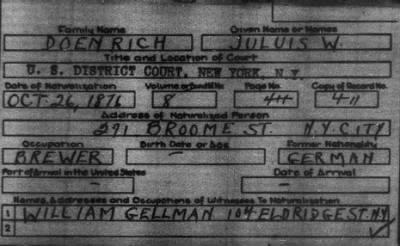 Family Name Given Name or Names
DOENRICH JULUIS W.
Title and Location of Court
U. S. DISTRICT COURT, NEW YORK, N.Y.
Date of Naturalization Volume or Bundle No. Page No. Copy of Record No.
OCT 26, 1876 8 411
Address of Naturalized Person
291 BROOME ST. N.Y. CITY
Occupation Birth Date or Age Former Nationality
BREWER — GERMAN
Port of Arrival in the United States Date of Arrival
— —
Names, Addresses and Occupations of Witnesses To Naturalization
1 WILLIAM GELLMAN 104 ELDRIDGE ST. NY
2